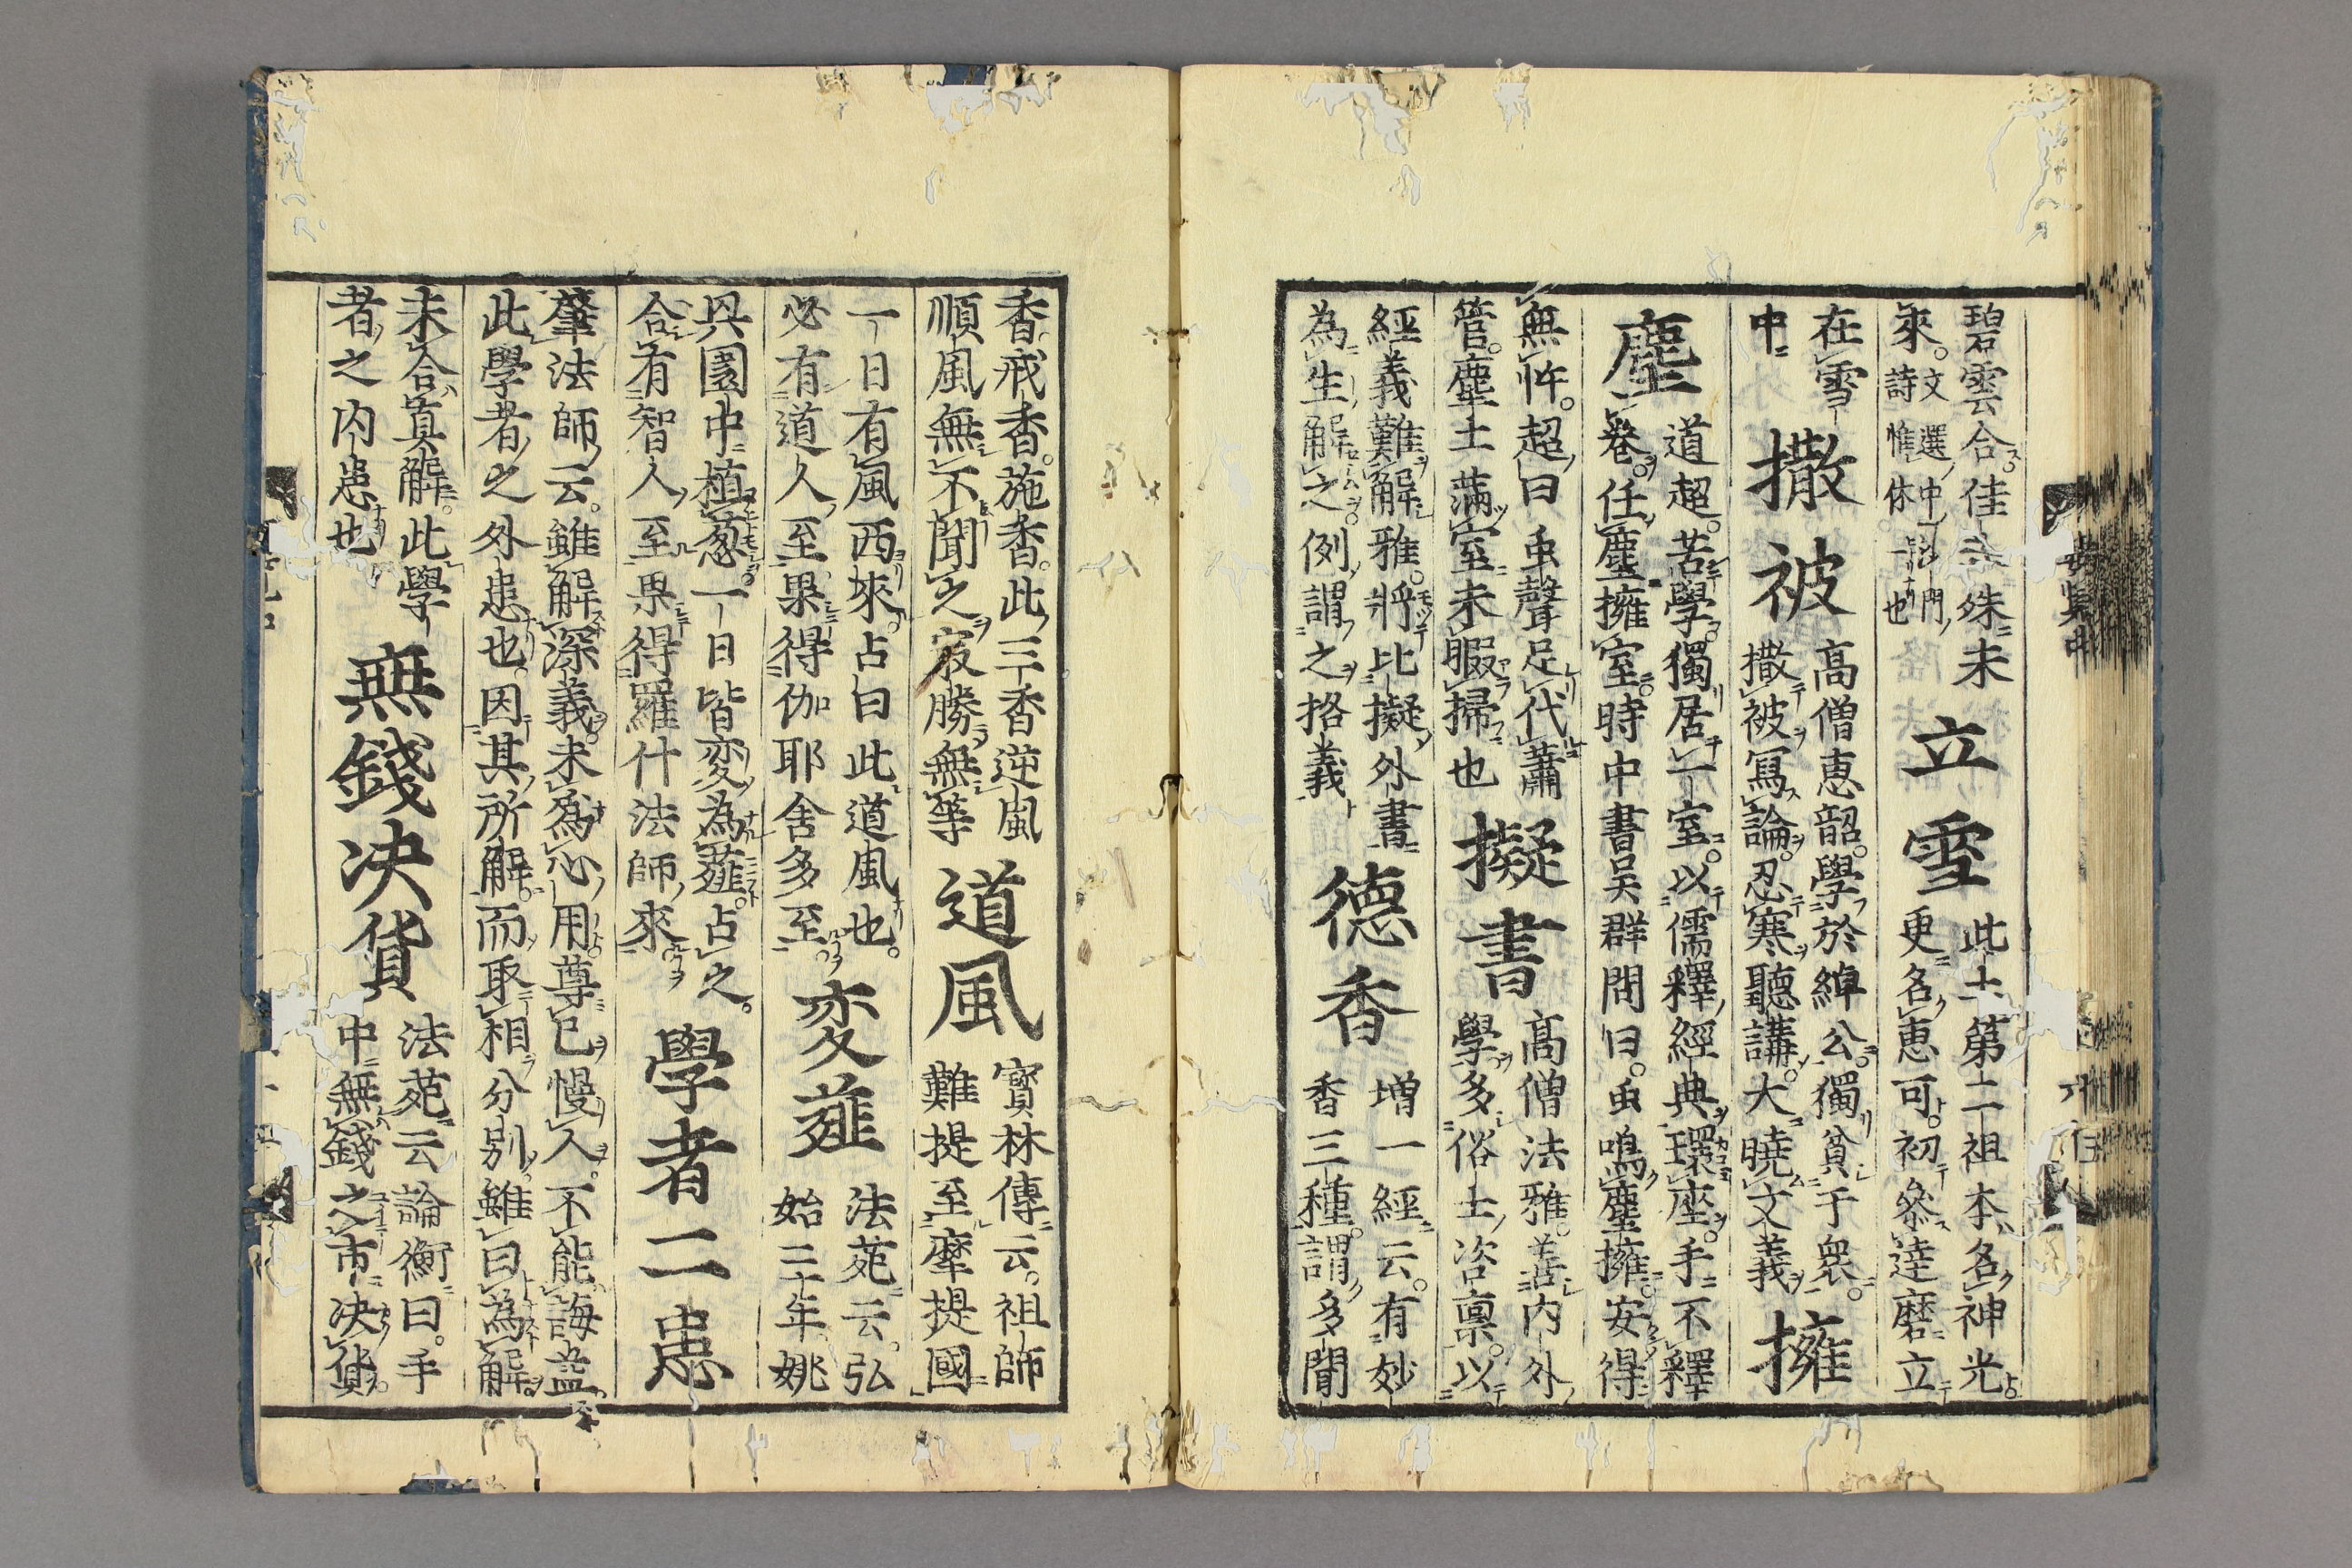 碧雲合。佳人殊未
來。文選中沙門
詩惟休。一也
立雪
此土第二祖本名神光
更名恵可。初叅達磨立
在雪
中
撒被
高僧恵韶。學於綽公。獨貧于衆。
撒被冩論。忍寒聽講。大曉文義
擁
塵
道超。苦學。獨居一室。以儒釋經典環座。手不釋
卷。任塵擁室。時中書吴群問曰。虫鳴塵擁。安得
無忤。超曰虫聲足代蕭
管。塵土滿室未暇掃也
擬書
高僧法雅。善内外
學。多俗士咨禀。以
經義難解雅。將比擬外書
為生解之。例謂之挌義
德香
増一經云。有妙
香三種。謂多聞
香。戒香。施香。此三香逆風
順風無不聞之㝡勝無等
道風
寳林傳云。祖師
難提至摩提國
一日有風西來。占曰此道風也。
必有道人至果得伽耶舍多至。
変薤
法苑云。弘
始三年姚
興園中植葱。一日皆変為薤。占之。
合有智人至果得羅什法師來
學者二患
肇法師云。雖解深義。未為心用。尊已慢人。不能誨益。
此學者之外患也。因其所解。而取相分別。雖曰為解。
未合真解。此學
者之内患也
無錢決貨
法苑云論衡曰。手
中無錢之市決貨。